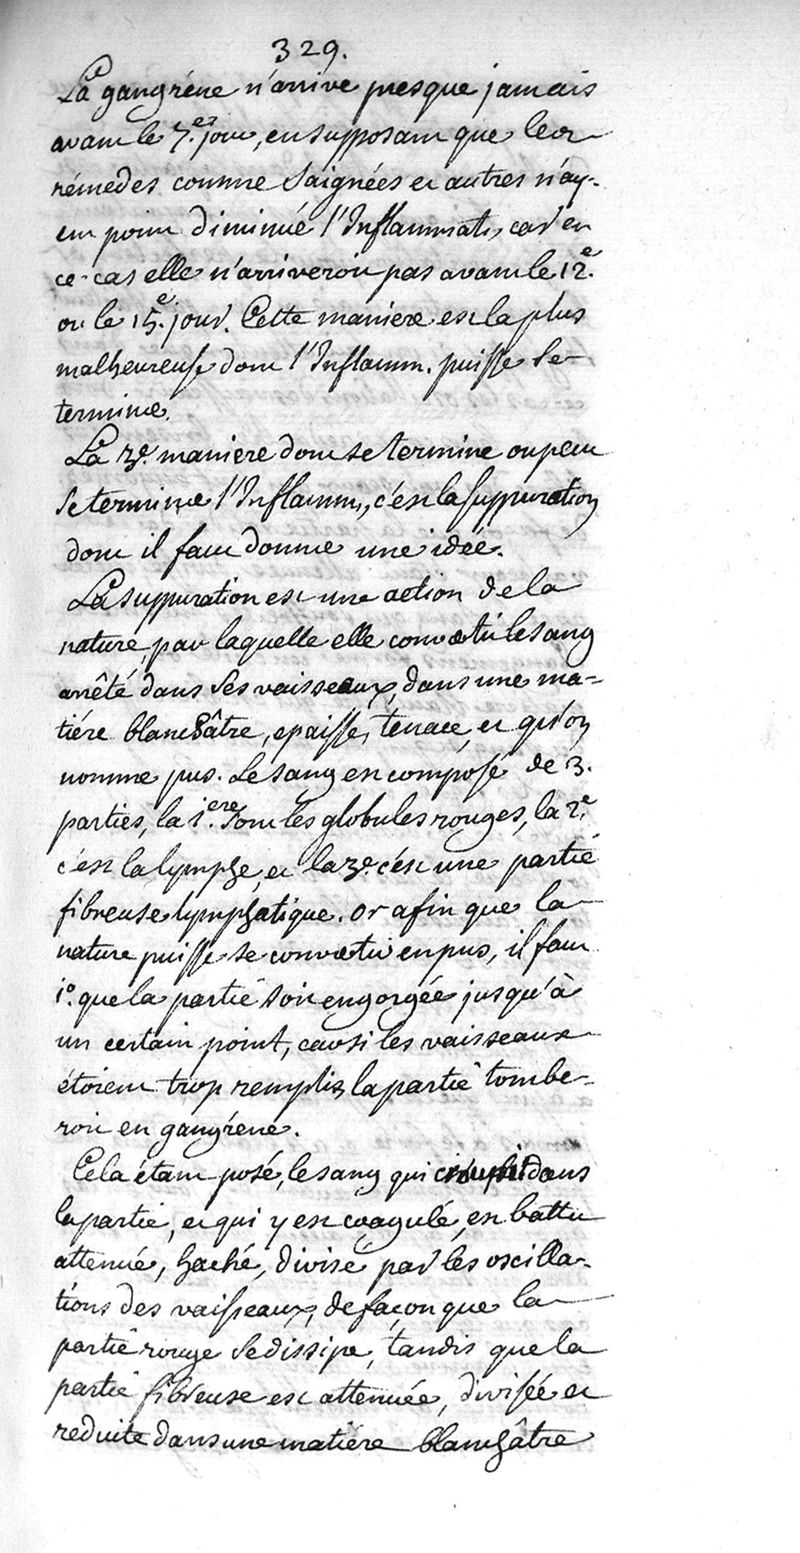 329.
La gangréne n'arrive presque jamais
avant le 7.e jour, en supposant que les
rémedes comme Saignées et autres n'ay-
ent point diminué l'Inflammat., car en
ce cas elle n'arriveroit pas avant le 12.e
ou le 15.e jour. Cette maniere est la plus
malheureuse dont l'Inflamm. puisse se
terminer.
La 3e. maniere dont se termine ou peut
se terminer l'Inflamm., c'est la suppuration
dont il faut donner une idée.
La suppuration est une action de la
nature, par laquelle elle convertit le sang
arrêté dans ses vaisseaux, dans une ma-
tiére blanchâtre, epaisse, tenace, et qu'on
nomme pus. Le sang est composé de 3.
parties, la 1.ere sont les globules rouges, la 2.e
c'est la lymphe, et la 3e. c'est une partie
fibreuse lymphatique. Or afin que la
nature puisse se convertir en pus, il faut
1.° que la partie soit engorgée jusqu'à
un certain point, car si les vaisseaux
étoient trop remplis, la partie tombe-
roit en gangréne.
Cela étant posé, le sang qui croupit dans
la partie, et qui y est coagulé, est battu
attenué, haché, divisé par les oscilla-
tions des vaisseaux, de façon que la
partie rouge se dissipe, tandis que la
partie fibreuse est attenuée, divisée et
reduite dans une matiére blanchâtre